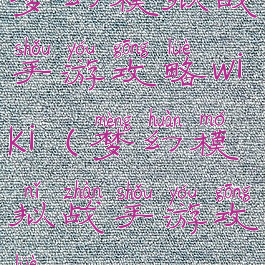 梦幻模拟战
shǒu yóu gōng lüè
手游攻略wi
mèng huàn mó
ki（梦幻模
nǐ zhàn shǒu yóu gōng
拟战手游攻
lüè